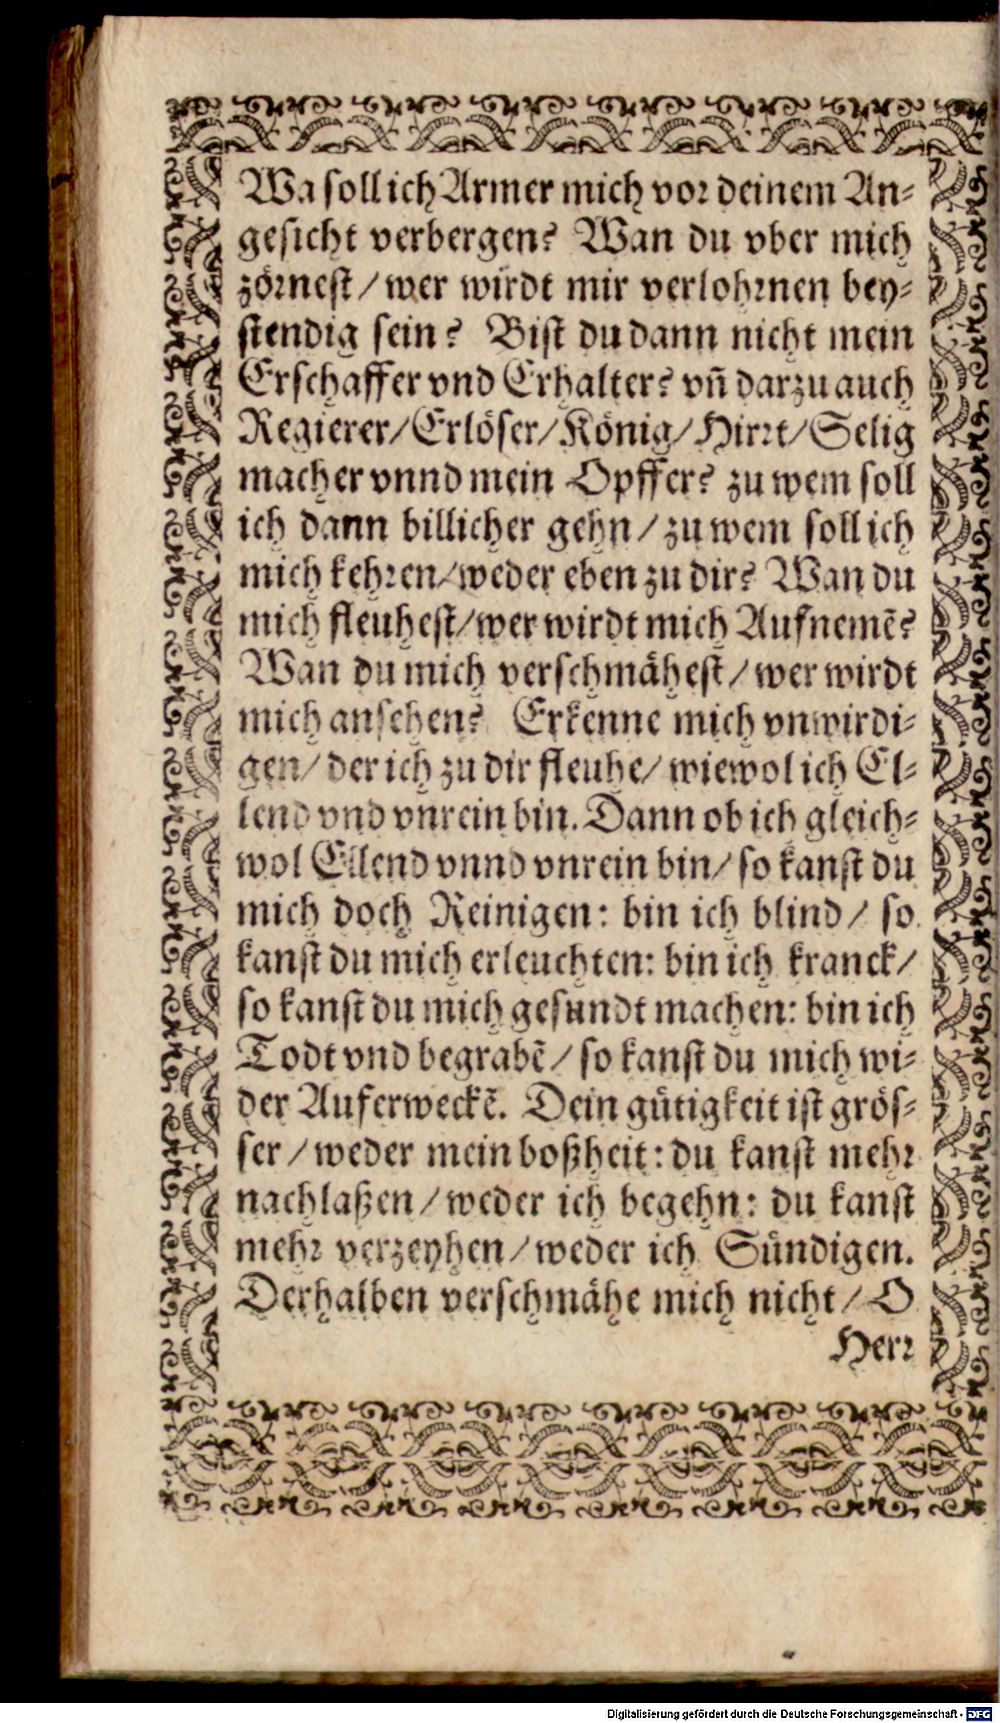 Wa soll ich Armer mich vor deinem An-
gesicht verbergen? Wan du vber mich
zörnest / wer wirdt mir verlohrnen bey-
stendig sein? Bist du dann nicht mein
Erschaffer vnd Erhalter? vn̄ darzu auch
Regierer / Erlöser / König / Hirrt / Selig
macher vnnd mein Opffer? zu wem soll
ich dann billicher gehn / zu wem soll ich
mich kehren / weder eben zu dir? Wan du
mich fleuhest / wer wirdt mich Aufnemē?
Wan du mich verschmähest / wer wirdt
mich ansehen? Erkenne mich vnwirdi-
gen / der ich zu dir fleuhe / wiewol ich El-
lend vnd vnrein bin. Dann ob ich gleich-
wol Ellend vnnd vnrein bin / so kanst du
mich doch Reinigen: bin ich blind / so
kanst du mich erleuchten: bin ich kranck /
so kanst du mich gesundt machen: bin ich
Todt vnd begrabē / so kanst du mich wi-
der Auferweckē. Dein gütigkeit ist grös-
ser / weder mein boßheit: du kanst mehr
nachlaßen / weder ich begehn: du kanst
mehr verzeyhen / weder ich Sündigen.
Derhalben verschmähe mich nicht / O
Herr
Digitalisierung gefördert durch die Deutsche Forschungsgemeinschaft - DFG